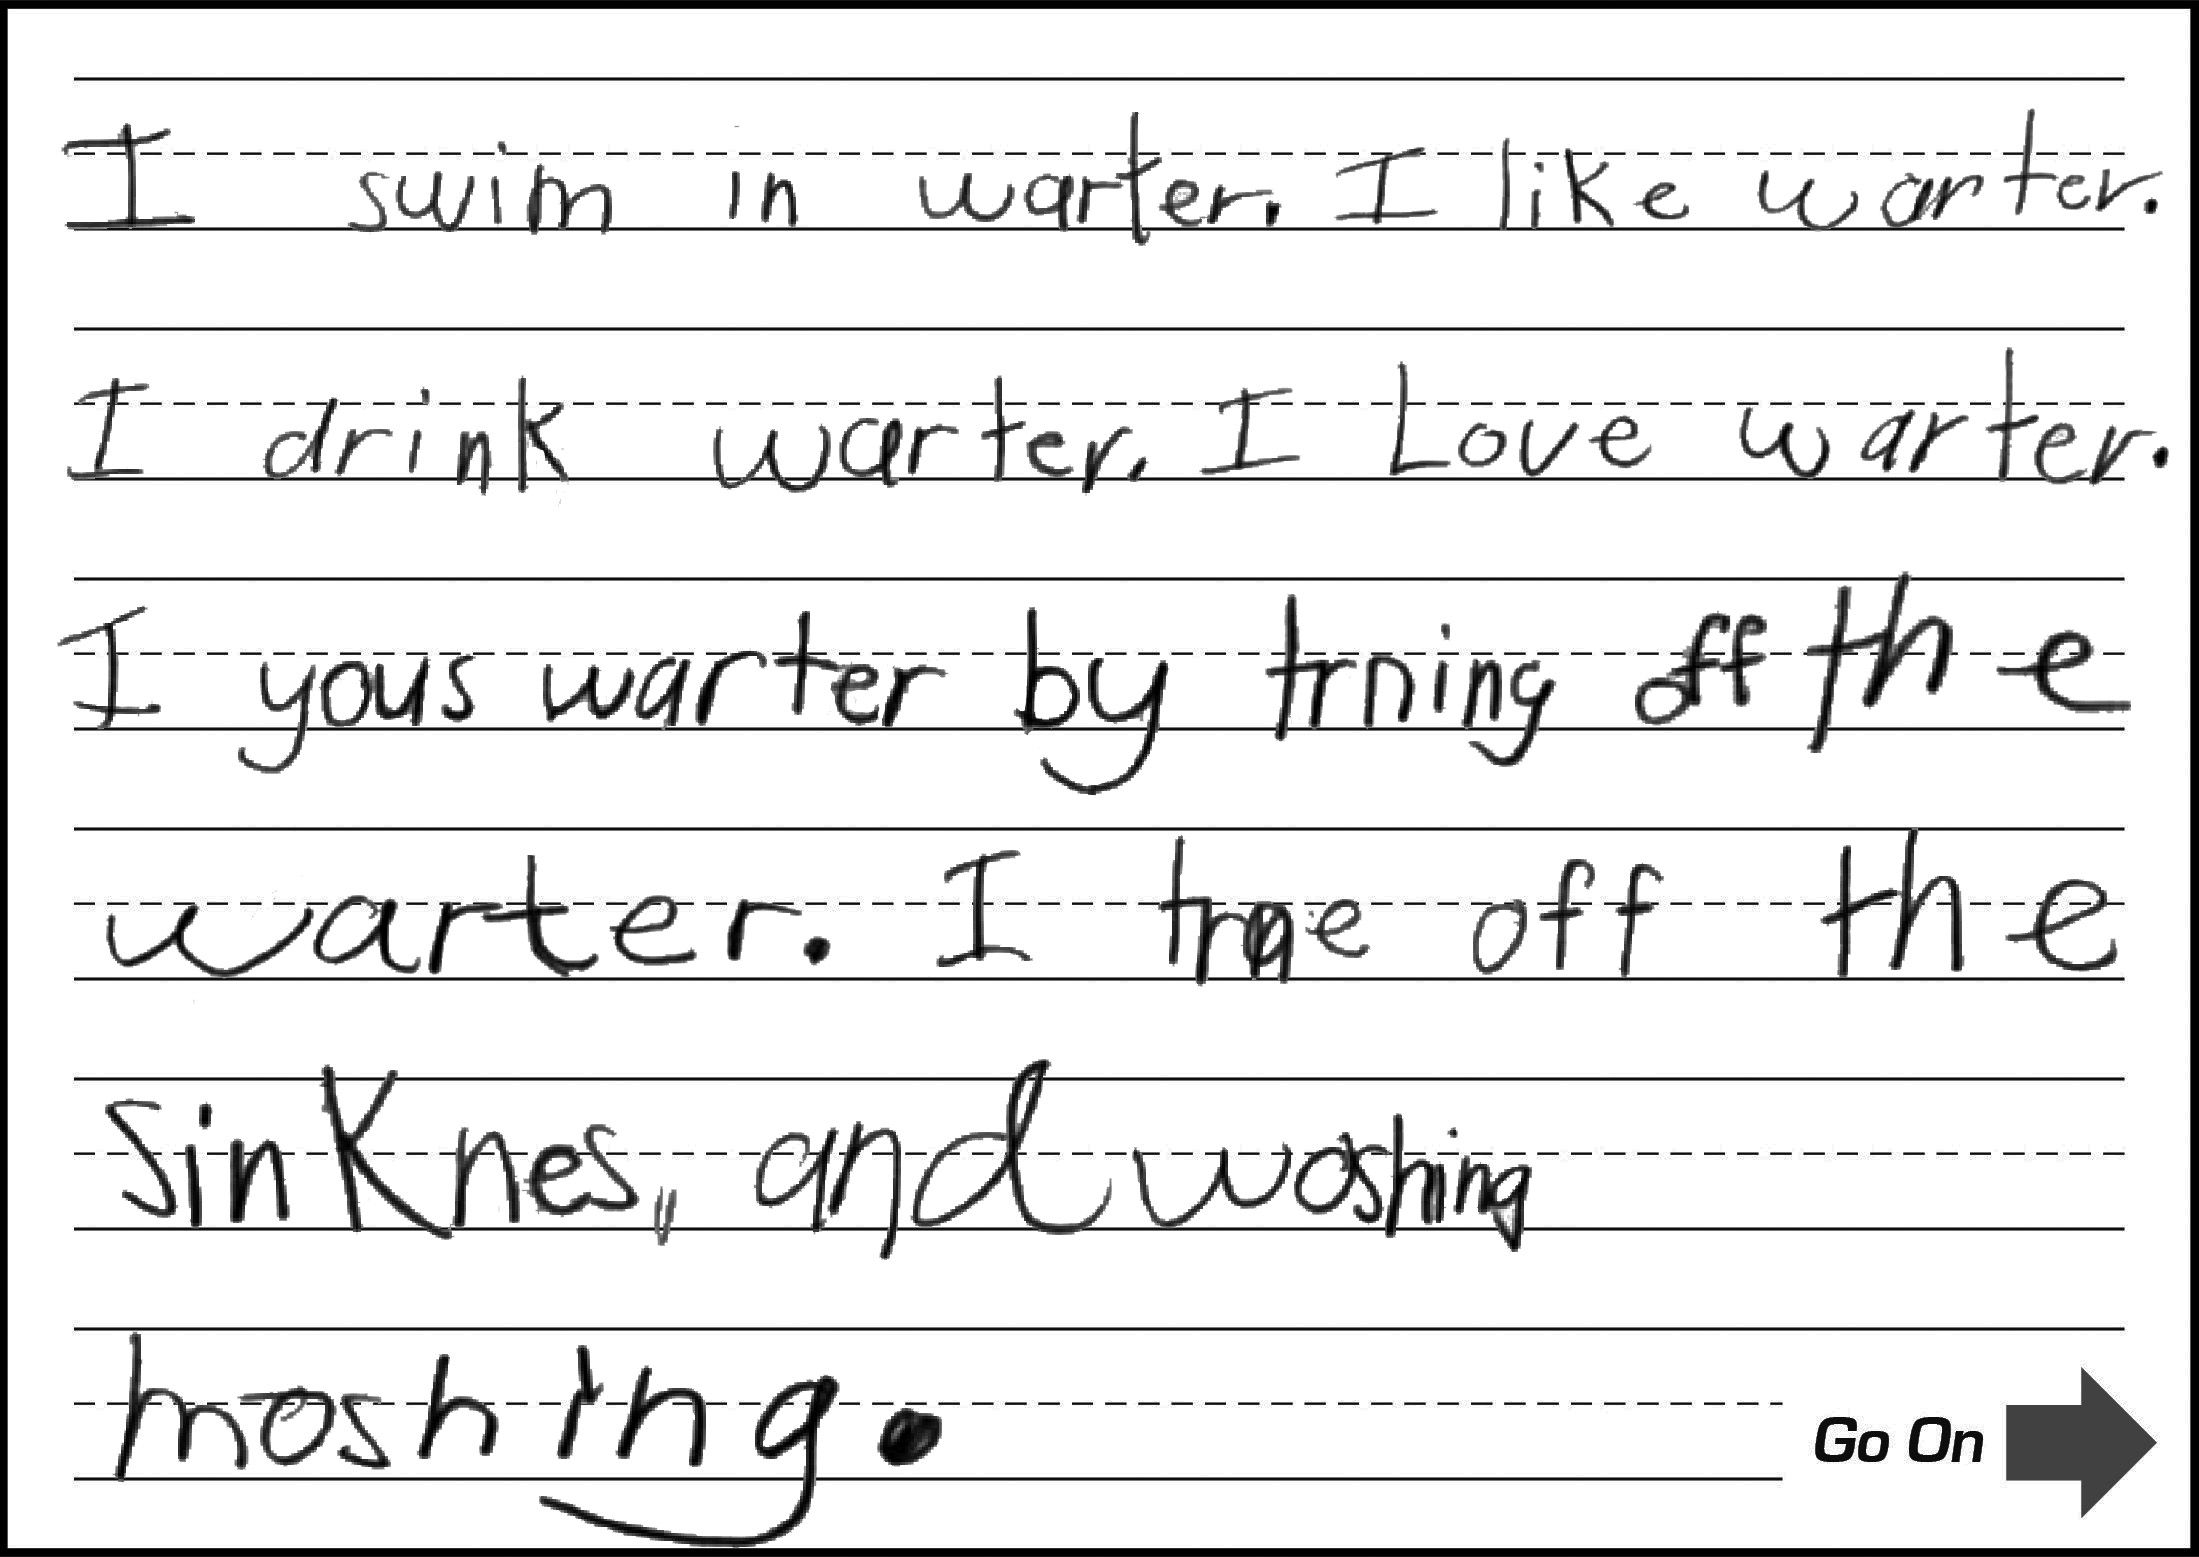 I swim in warter. I like warter.
I drink warter. I Love warter.
I yous warter by trning off the
warter. I trne off the
sinknes, and woshing
moshing.
Go On